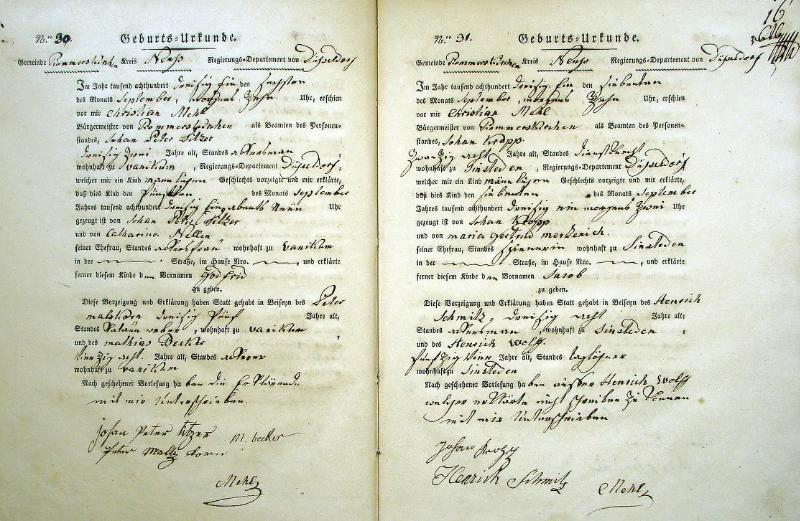 Nro. 30. Geburts-Urkunde.
Gemeinde Rommerskirchen Kreis Neuss Regierungs-Departement von Düsseldorf
Im Jahr tausend achthundert dreisig Ein den sechsten
des Monats September, Morgens Zehn Uhr, erschien
vor mir Christian Mehl
Bürgermeister von Rommerskirchen als Beamten des Personen-
standes, Johan Peter Sitzer
dreisig zwei Jahre alt, Standes Ackersman
wohnhaft zu Vanikum, Regierungs-Departement Düsseldorf,
welcher mir ein Kind Geschlechts vorzeigte und mir erklärte,
daß dies Kind den fünften des Monats September
Jahres tausend achthundert dreisig Ein, abends Neun Uhr
gezeugt ist von Johan Peter Sitzer
und von Catharina Nellen
seiner Ehefrau, Standes Ackersfrau wohnhaft zu Vanikum
in der Straße, im Hause Nro. , und erklärte
ferner diesem Kinde den Vornamen Godfrid
zu geben.
Diese Vorzeigung und Erklärung haben Statt gehabt in Beiseyn des Peter
dreisig fünf Jahre alt,
Standes wohnhaft zu Vanikum
und des Mathias Becker
vierzig acht Jahre alt, Standes Ackerer
wohnhaft zu Vanikum
Nach geschehener Vorlesung haben die
mit mir Unterschrieben
Johan Peter Sitzer M. Becker
Peter
Mehl
Nro. 31. Geburts-Urkunde.
16
Gemeinde Rommerskirchen Kreis Neuss Regierungs-Departement von Düsseldorf
Im Jahr tausend achthundert dreisig Ein den siebenten
des Monats September, Morgens Zehn Uhr, erschien
vor mir Christian Mehl
Bürgermeister von Rommerskirchen als Beamten des Personen-
standes, Johan Kropp
Zwanzig acht Jahre alt, Standes Dienstknecht
wohnhaft zu Sinsteden, Regierungs-Departement Düsseldorf,
welcher mir ein Kind Geschlechts vorzeigte und mir erklärte,
daß dies Kind den siebenten des Monats September
Jahres tausend achthundert dreisig ein morgens Zwei Uhr
gezeugt ist von Johan Kropp
und von Maria Gertrud Merkenich
seiner Ehefrau, Standes Spinnerin wohnhaft zu Sinsteden
in der Straße, im Hause Nro. , und erklärte
ferner diesem Kinde den Vornamen Jacob
zu geben.
Diese Vorzeigung und Erklärung haben Statt gehabt in Beiseyn des Henrich
Schmitz, dreisig acht Jahre alt,
Standes Ackersman wohnhaft zu Sinsteden
und des Henrich Wolff
fünfzig Neun Jahre alt, Standes taglöhner
wohnhaft zu Sinsteden
Nach geschehener Vorlesung haben ausser Henrich Wolff
welcher erklärte nicht schreiben zu können
mit mir Unterschrieben
Johan Kropp
Henrich Schmitz Mehl